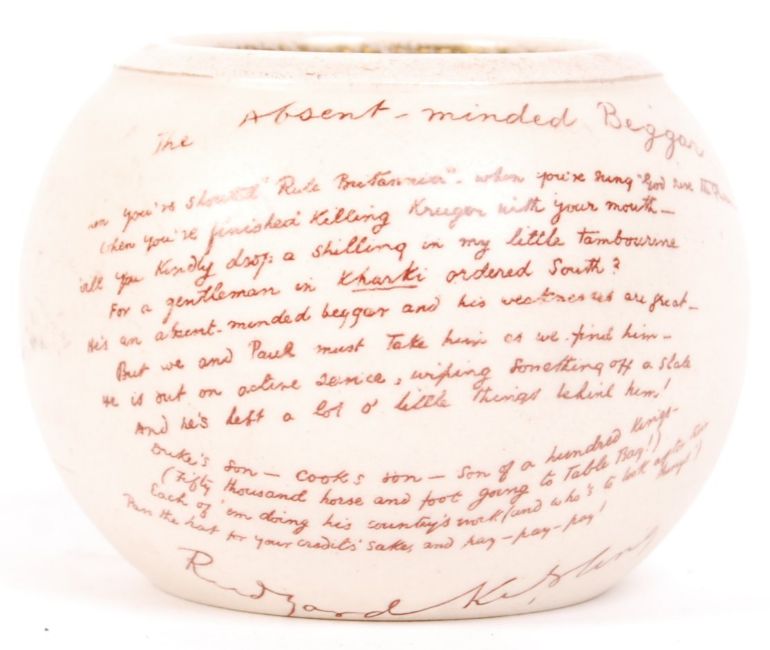 The Absent-minded Beggar
you've shouted "Rule Britannia" - when you've sung "God save the
When you've finished killing Kruger with your mouth -
will you kindly drop a shilling in my little tambourine
For a gentleman in Kharki ordered South?
He's an absent-minded beggar and his weaknesses are great -
But we and Paul must take him as we find him -
He is out on active service, wiping something off a slate
And he's left a lot o' little things behind him!
Duke's son - cook's son - son of a hundred Kings -
(Fifty thousand horse and foot going to Table Bay!)
Each of 'em doing his country's work (and who's to look after their
things?)
Pass the hat for your credit's sake, and pay - pay - pay!
Rudyard Kipling